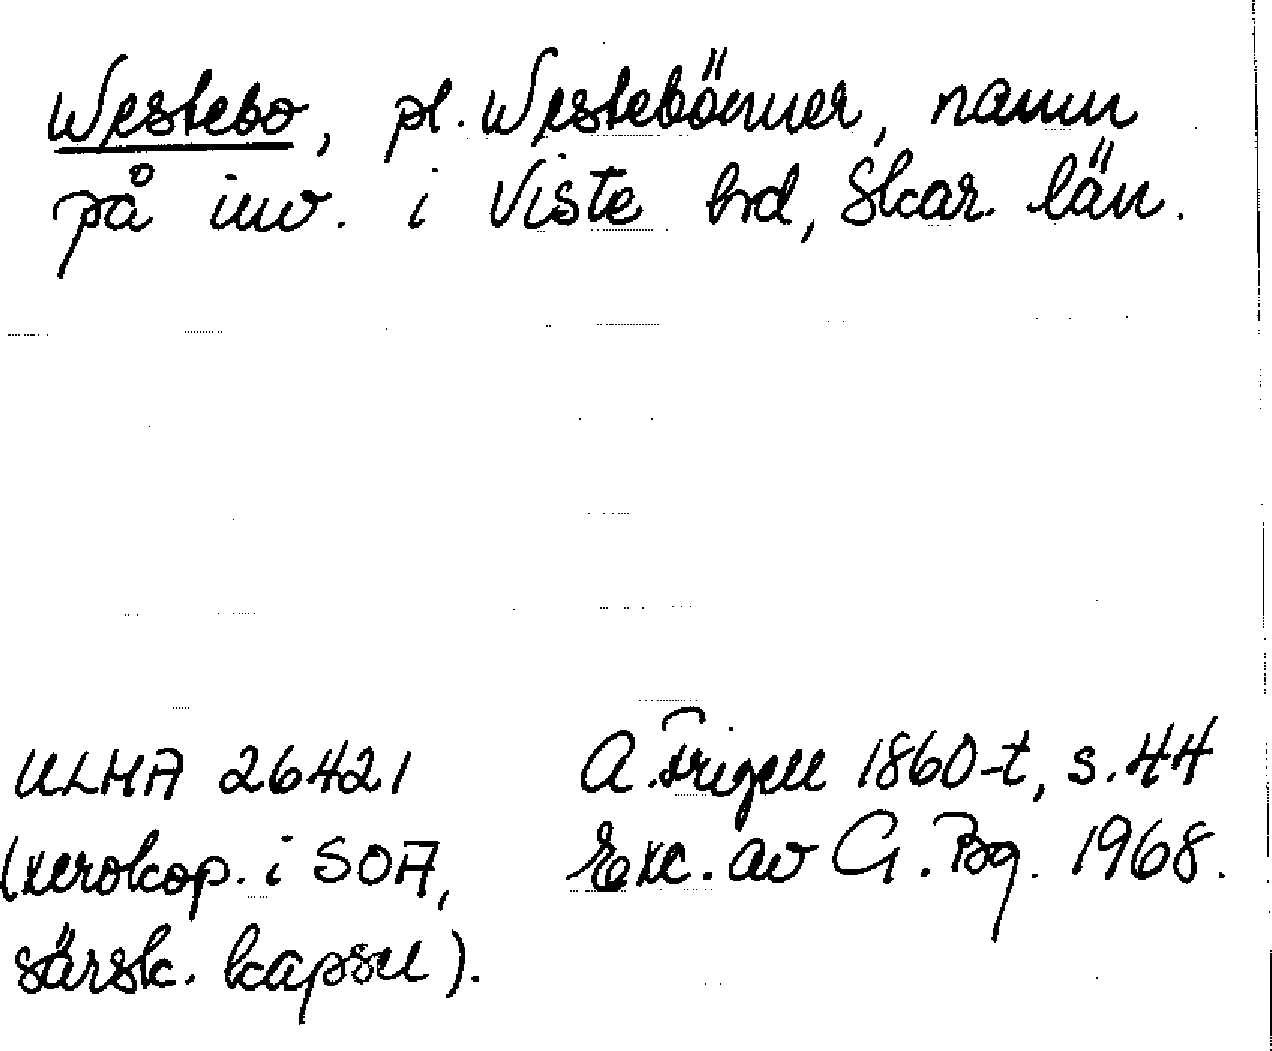 Westebo, pl. Westebönner, namn
på inv. i Viste hd, Skar. län.
ULMA 26421
(xerokop. i SOA,
särsk. kapsel).
A. Frigell 1860-t, s. 44
Exc. av G. Bg. 1968.